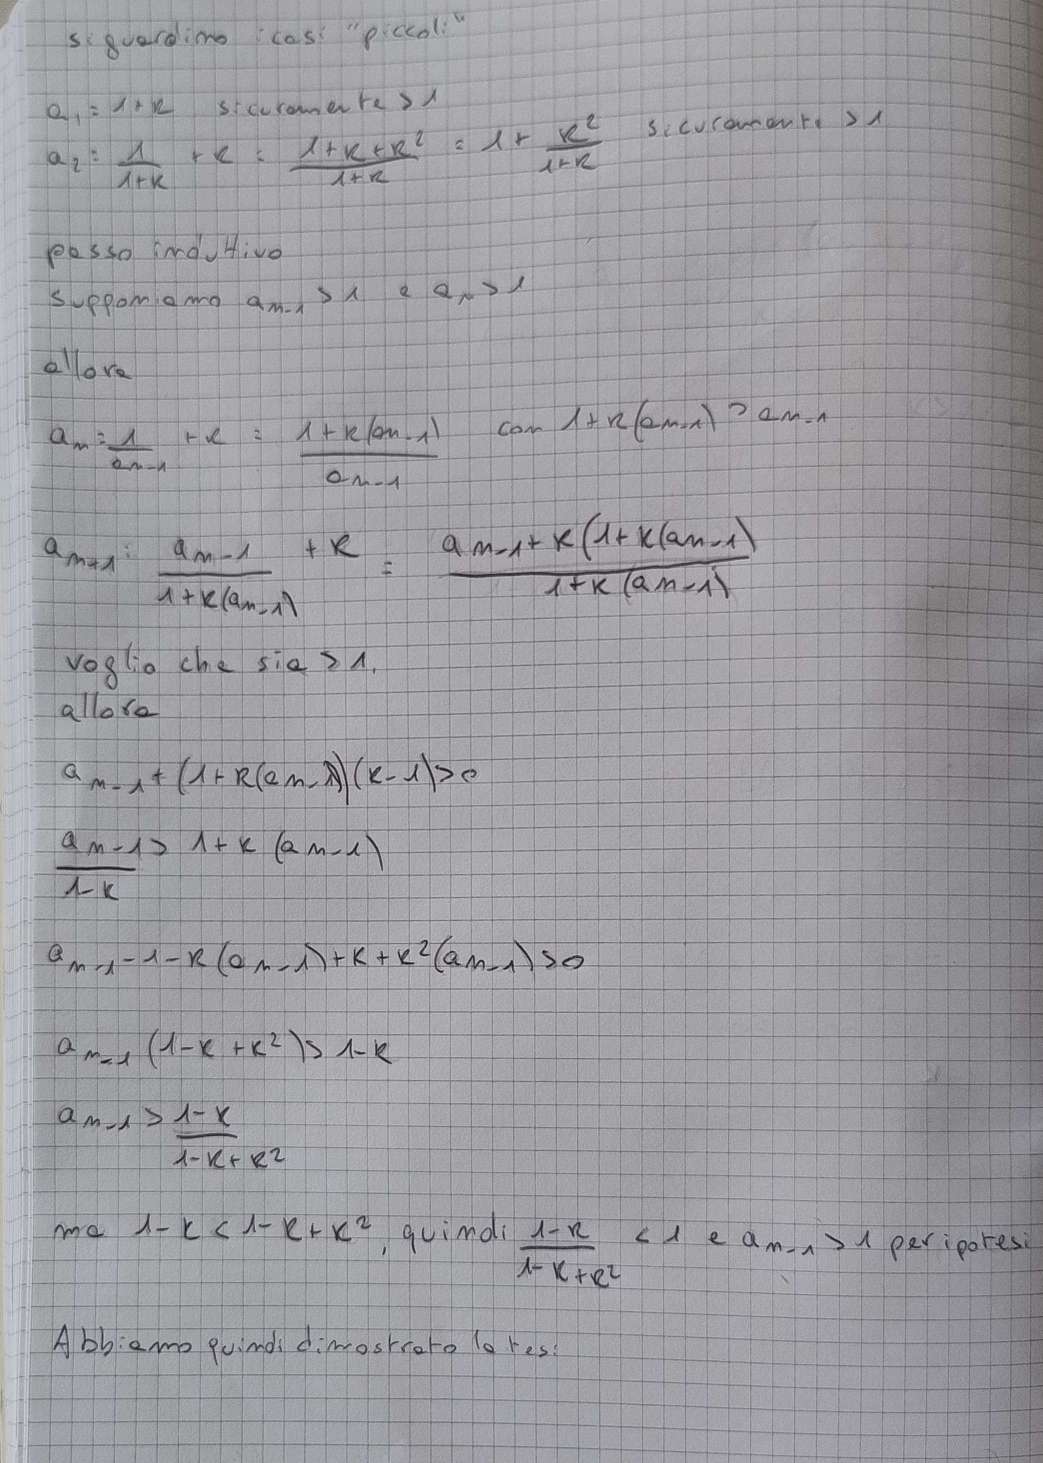 si guardino i casi "piccoli"
a₁ = 1+k sicuramente > 1
a₂ = 1/(1+k) + k = (1+k+k²)/(1+k) = 1 + k²/(1+k) sicuramente > 1
passo induttivo
supponiamo aₙ₋₁ > 1 e aₙ > 1
allora
aₙ = 1/aₙ₋₁ + k = (1+k(aₙ₋₁))/aₙ₋₁ con 1+k(aₙ₋₁) > aₙ₋₁
aₙ₊₁ = aₙ₋₁/(1+k(aₙ₋₁)) + k = (aₙ₋₁+k(1+k(aₙ₋₁))/(1+k(aₙ₋₁))
voglio che sia > 1.
allora
aₙ₋₁ + (1+k(aₙ₋₁))(k-1) > 0
aₙ₋₁/(1-k) > 1+k(aₙ₋₁)
aₙ₋₁ - 1 - k(aₙ₋₁) + k + k²(aₙ₋₁) > 0
aₙ₋₁(1-k+k²) > 1-k
aₙ₋₁ > (1-k)/(1-k+k²)
ma 1-k < 1-k+k², quindi (1-k)/(1-k+k²) < 1 e aₙ₋₁ > 1 per ipotesi
Abbiamo quindi dimostrato la tesi